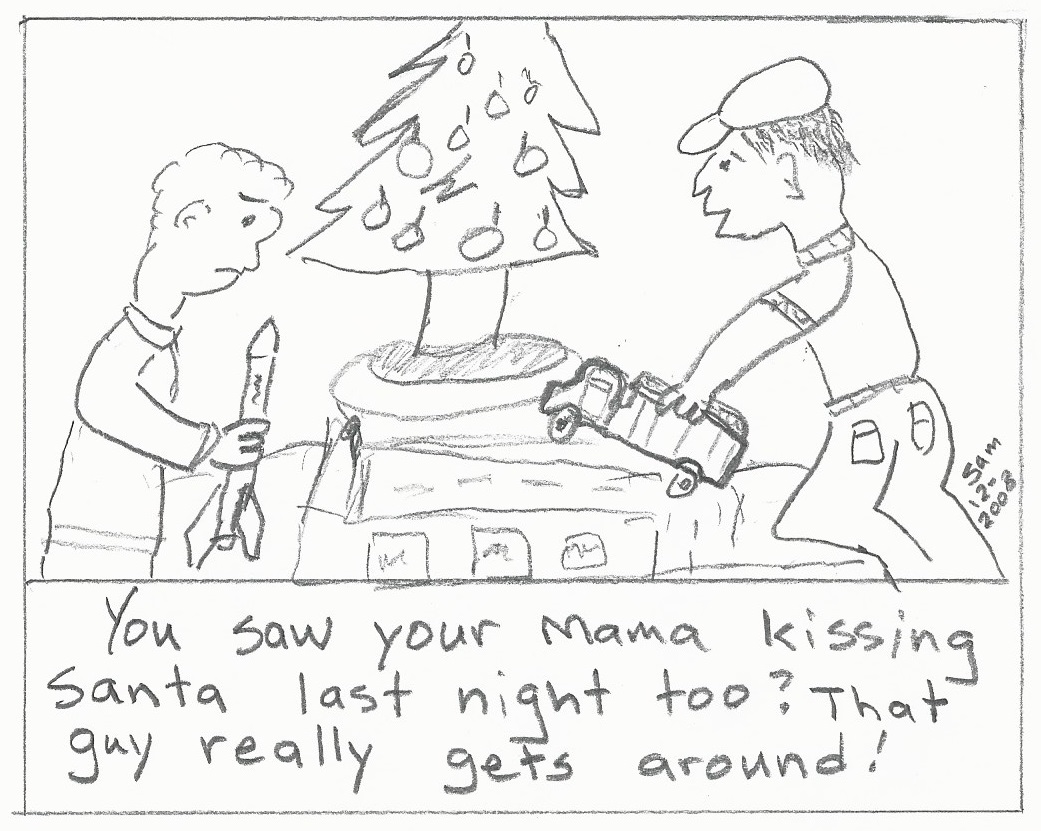 Sam
12.
2008
You saw your Mama kissing
Santa last night too? That
guy really gets around!